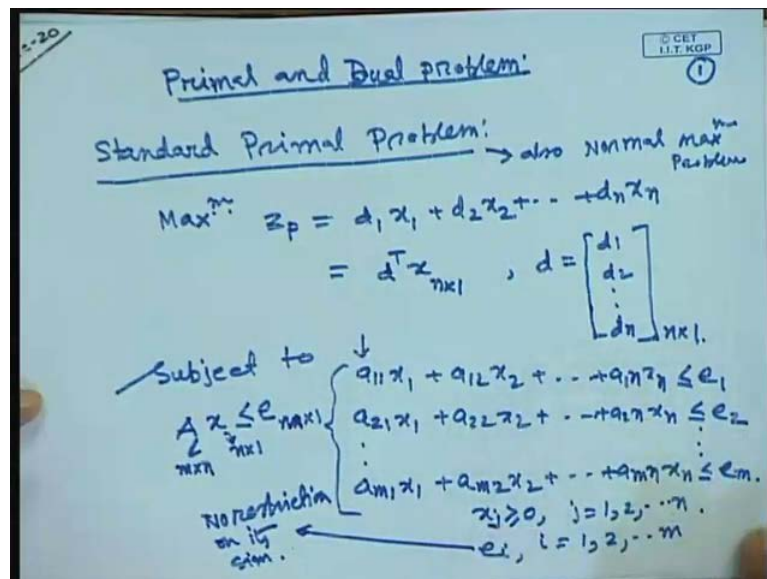 -20
© CET
I.I.T. KGP
1
Primal and Dual problem:
Standard Primal Problem: → also Normal maxᵐ Problem
Maxᵐ. z_p = d₁x₁ + d₂x₂ + ·· + dₙxₙ
= dᵀx_{n×1} , d = [d₁ d₂ ⋮ dₙ]_{n×1}.
Subject to ↓
A_{m×n} x_{n×1} ≤ e_{m×1} { a₁₁x₁ + a₁₂x₂ + ·· + a₁ₙxₙ ≤ e₁
a₂₁x₁ + a₂₂x₂ + ·· + a₂ₙxₙ ≤ e₂
⋮ ⋮
aₘ₁x₁ + aₘ₂x₂ + ·· + aₘₙxₙ ≤ eₘ.
xⱼ ≥ 0, j = 1, 2, ·· n.
No restriction on its sign. ← eᵢ, i = 1, 2, ·· m